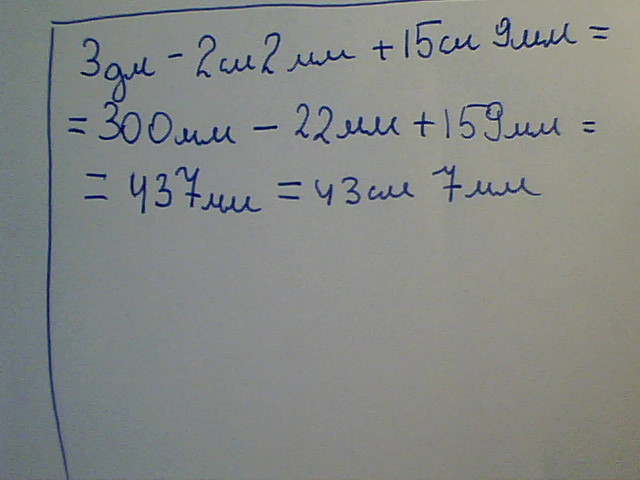 3дм - 2см2мм + 15см 9мм =
= 300мм - 22мм + 159мм =
= 437мм = 43см 7мм